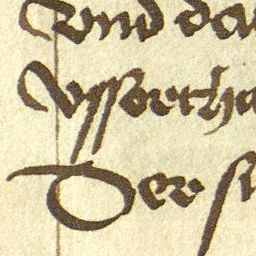 Vnd da
Vssortha
Der si